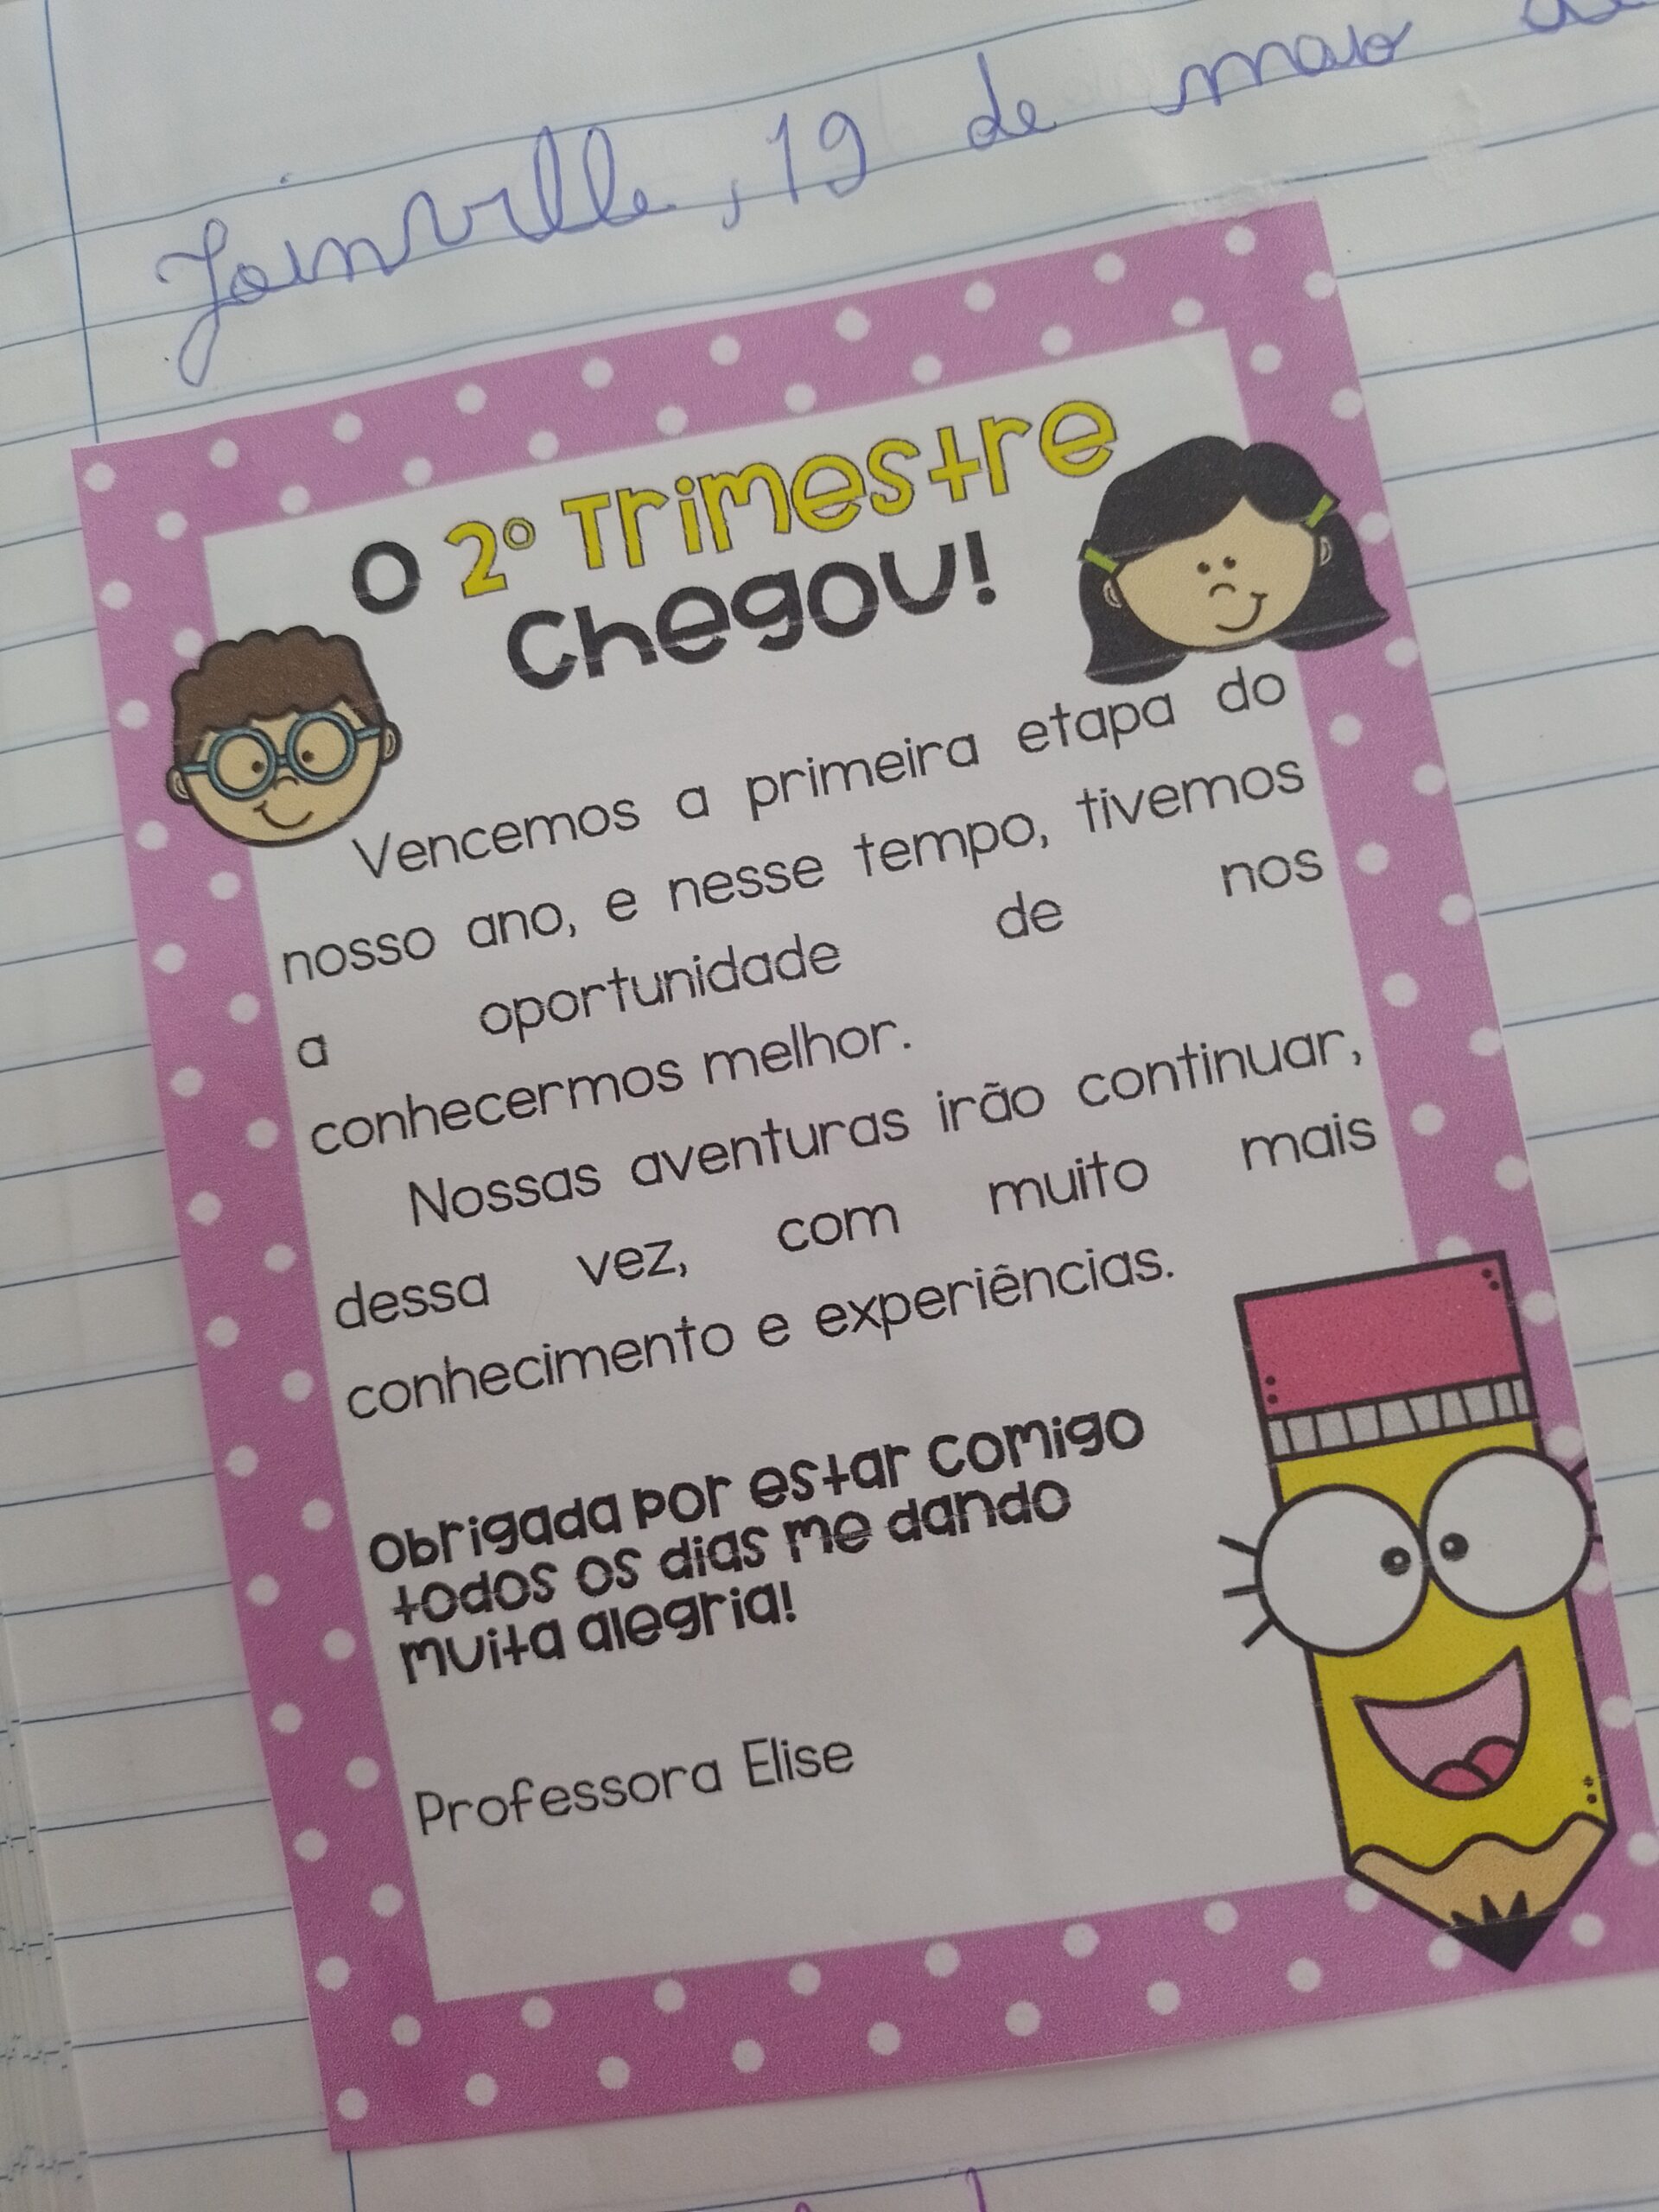 Joinville, 19 de maio
O 2º Trimestre
Chegou!
Vencemos a primeira etapa do
nosso ano, e nesse tempo, tivemos
a oportunidade de nos
conhecermos melhor.
Nossas aventuras irão continuar,
dessa vez, com muito mais
conhecimento e experiências.
Obrigada por estar comigo
todos os dias me dando
muita alegria!
Professora Elise